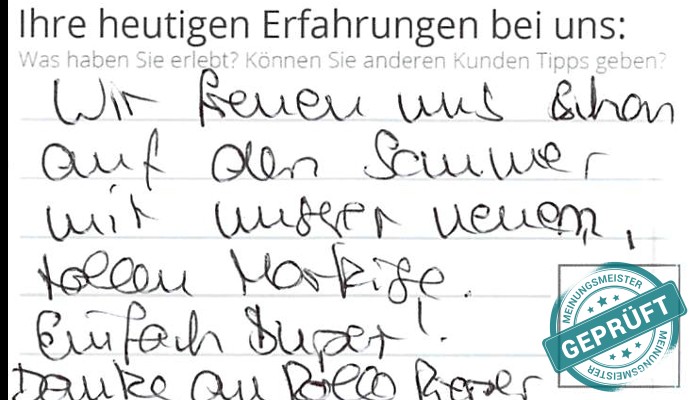 Ihre heutigen Erfahrungen bei uns:
Was haben Sie erlebt? Können Sie anderen Kunden Tipps geben?
Wir freuen uns schon
auf den Sommer
mit unserer neuen,
tollen Markise.
Einfach Super!
Danke an Rollo Rieper
MEINUNGSMEISTER
GEPRÜFT
MEINUNGSMEISTER